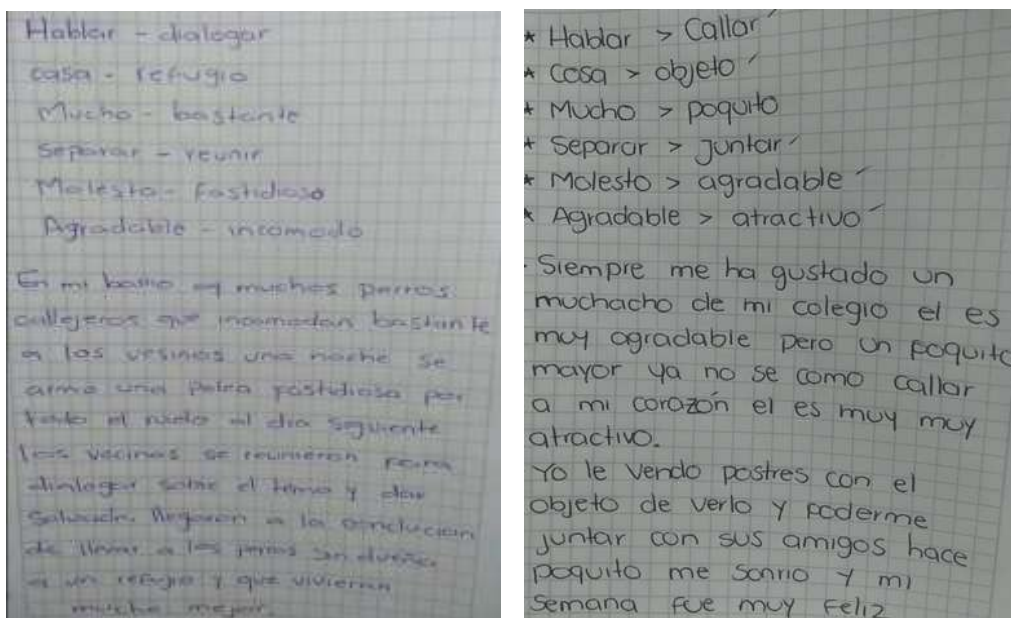 Hablar - dialogar
casa - refugio
Mucho - bastante
Separar - reunir
Molesto - Fastidioso
Agradable - incomodo
En mi barrio ay muchos perros
callejeros que incomodan bastante
a los vesinos una noche se
armo una pelea fastidiosa por
todo el ruido al dia siguiente
los vecinos se reunieron para
dialogar sobre el tema y dar
Solución. llegaron a la conclucion
de llevar a los perros sin dueño
a un refugio y que vivieran
mucho mejor.
* Hablar > Callar
* Cosa > objeto
* Mucho > poquito
* Separar > juntar
* Molesto > agradable
* Agradable > atractivo
Siempre me ha gustado un
muchacho de mi colegio el es
muy agradable pero un poquito
mayor ya no se como callar
a mi corazón el es muy muy
atractivo.
Yo le vendo postres con el
objeto de verlo y poderme
juntar con sus amigos hace
poquito me sonrio y mi
semana fue muy feliz